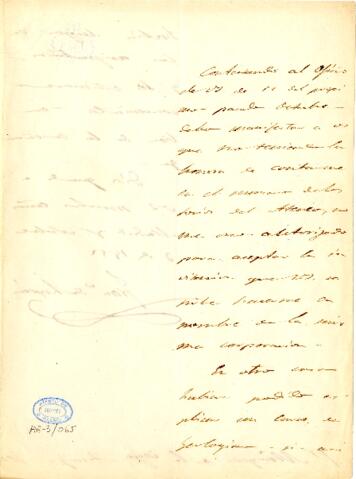 Contestando al Oficio
de VS de 11 del proxi
mo pasado Octubre
debo manifestar a VS
que no teniendo la
honra de contarme
en el numero de los
socios del Ateneo, no
me creo autorizado
para aceptar la in
vitacion que VS. se
sirve hacerme a
nombre de la mis
ma corporacion.
En otro caso
hubiera podido es
plicar un curso de
Geologia
RR-3/065